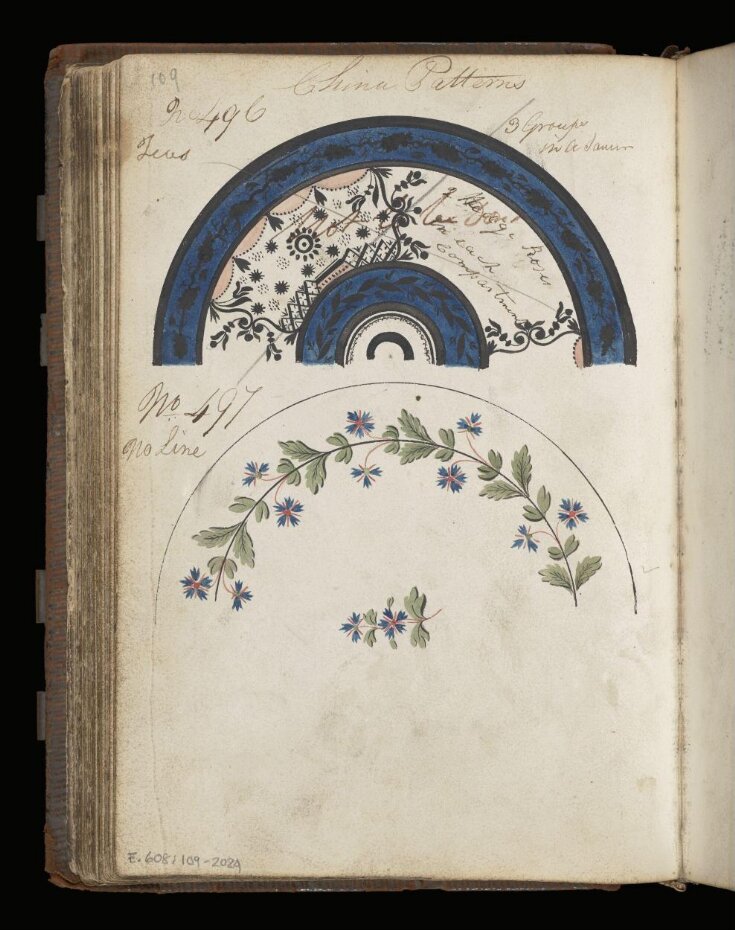 109
China Patterns
No 496
3 Groups
in a Saucer
Teas
in each
Compartment
No 497
No Line
E.608:109-2024